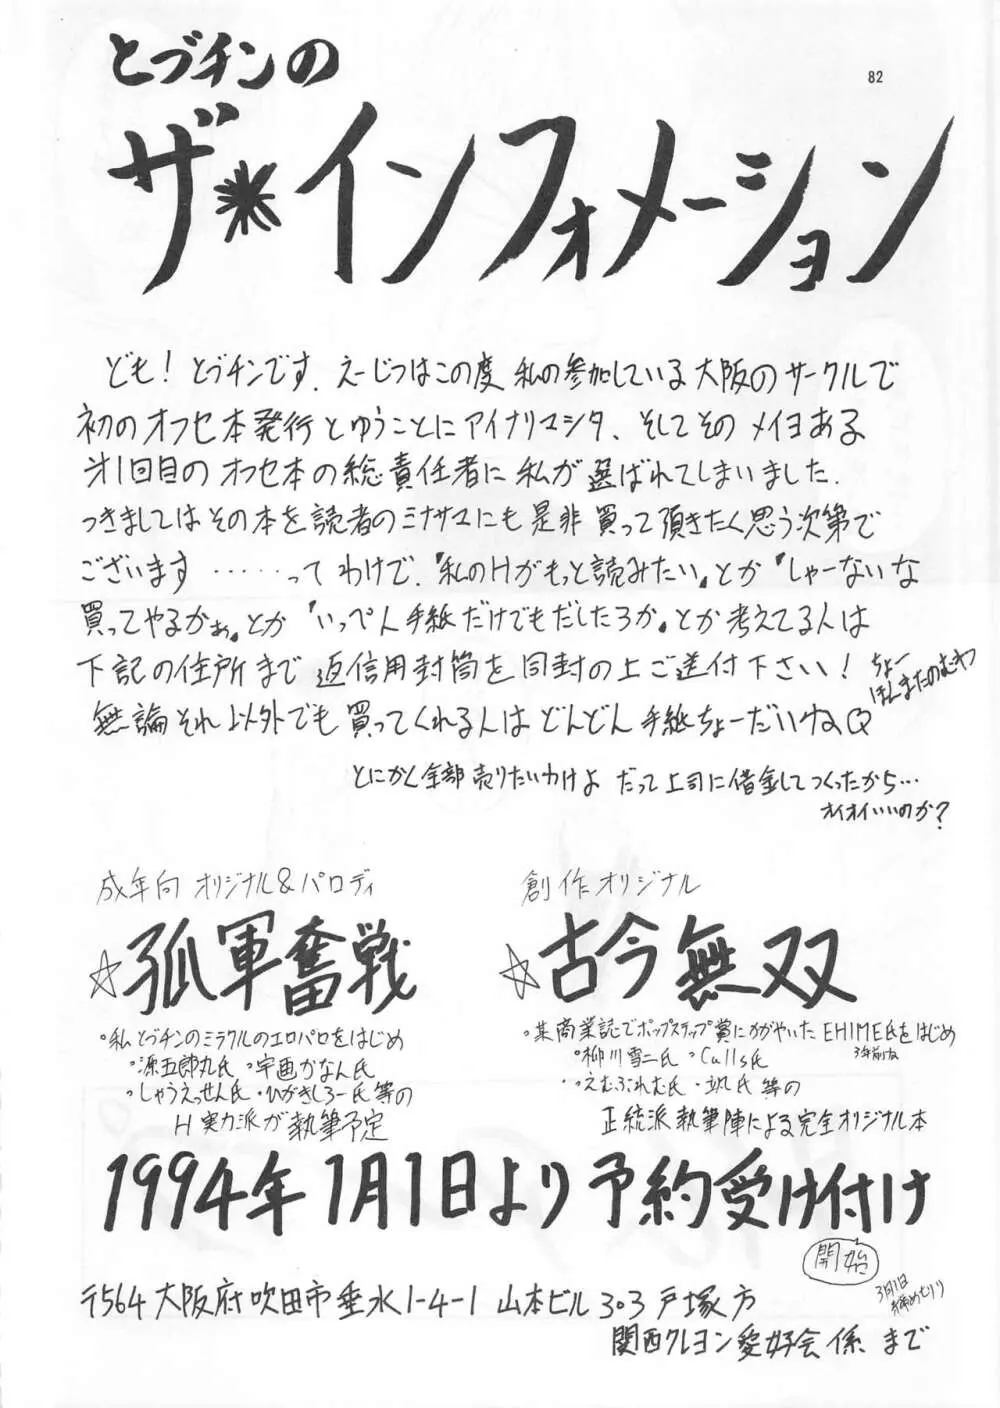 とブチンの
82
ザ*インフォメーション
ども!とブチンです.えーじつはこの度 私の参加している大阪のサークルで
初のオフセ本発行とゆうことにアイナリマシタ、そしてそのメイヨある
才1回目のオフセ本の総責任者に私が選ばれてしまいました.
つきましてはその本を読者のミナサマにも是非買って頂きたく思う次第で
ございます……ってわけで.『私のHがもっと読みたい』とか『しゃーないな
買ってやるかぁ』とか『いっぺん手紙だけでもだしたろか』とか考えてる人は
下記の住所まで返信用封筒を同封の上ご送付下さい!
ちょー
ほんまたのむわっ
無論それ以外でも買ってくれる人はどんどん手紙ちょーだいけな
とにかく全部売りたいわけよ だって上司に借金してつくったから…
オイオイいいのか?
成年向 オリジナル&パロディ
☆孤軍奮戦
・私とブチンのミラクルのエロパロをはじめ
・源五郎丸氏 ・宇画かなん氏
・しゃうえっせん氏・ひがきしろー氏等の
H実力派が執筆予定
創作オリジナル
☆古今無双
・某商業誌でポップステップ賞にかがやいたEHIME氏をはじめ
3年前ね
・柳川雪二氏 ・Culls氏
・えむぶれむ氏 ・氏等の
正統派執筆陣による完全オリジナル本
1994年1月1日より予約受け付け
開始
3月1日
締めきり
〒564 大阪府吹田市垂水1-4-1 山本ビル303戸塚方
関西クレヨン愛好会係まで